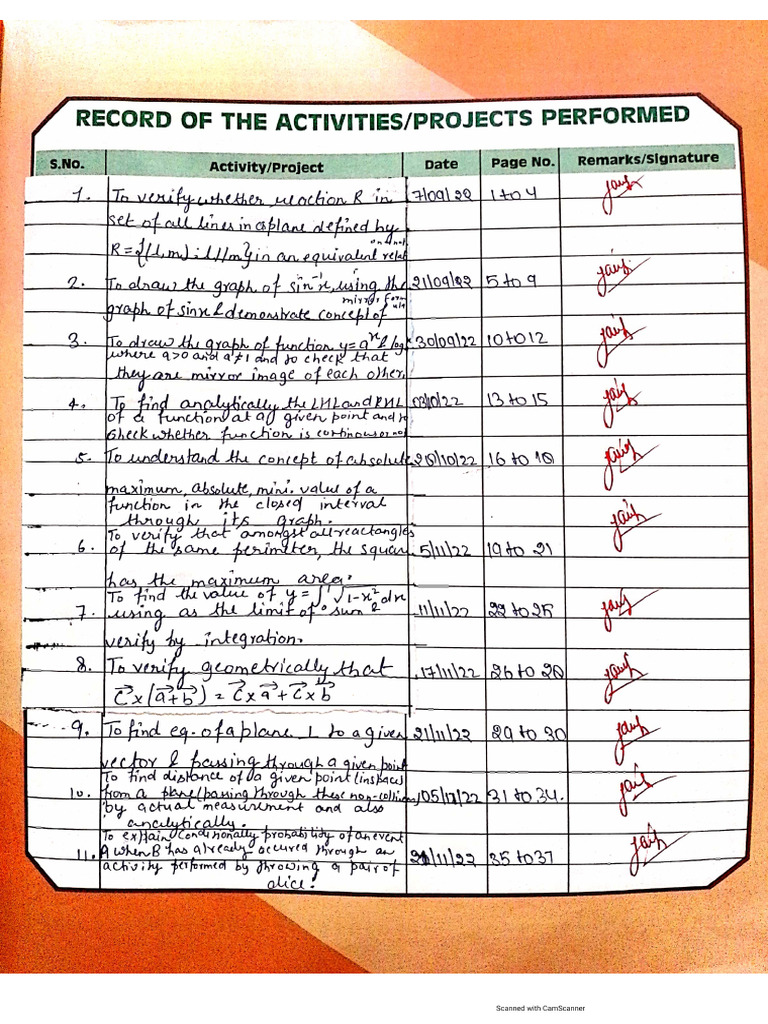 RECORD OF THE ACTIVITIES/PROJECTS PERFORMED
S.No. Activity/Project Date Page No. Remarks/Signature
1. To verify whether reaction R in 7/09/22 1 to 4
set of all lines in a plane defined by
R = {(l,m) : l//m} in an equivalent relat
or not
2. To draw the graph of sin⁻¹x, using the 21/09/22 5 to 9
graph of sinx & demonstrate concept of
mirror form
3. To draw the graph of function y=aˣ & log 30/09/22 10 to 12
where a>0 and a≠1 and to check that
they are mirror image of each other.
4. To find analytically the LHL and RHL 03/10/22 13 to 15
of a function at a given point and to
check whether function is continuous or no
5. To understand the concept of absolute 20/10/22 16 to 18
maximum, absolute, mini. value of a
function in the closed interval
through its graph.
6. To verify that amongst all reactangles 5/11/22 19 to 21
of the same perimeter, the squar
has the maximum area.
7. To find the value of y = ∫¹₀ √1-x² dx 11/11/22 22 to 25
using as the limit of sum &
verify by integration.
8. To verify geometrically that 17/11/22 26 to 28
c⃗ x (a⃗ + b⃗) = c⃗ x a⃗ + c⃗ x b⃗
9. To find eq. of a plane ⊥ to a given 21/11/22 29 to 30
vector & passing through a given point
10. To find distance of a given point (in space) 05/12/22 31 to 34.
from a plane (passing through these non-collinear
by actual measurement and also
analytically.
11. To explain conditionally probability of an event 21/11/22 35 to 37
A when B has already occured through an
activity performed by throwing a pair of
dice.
Scanned with CamScanner